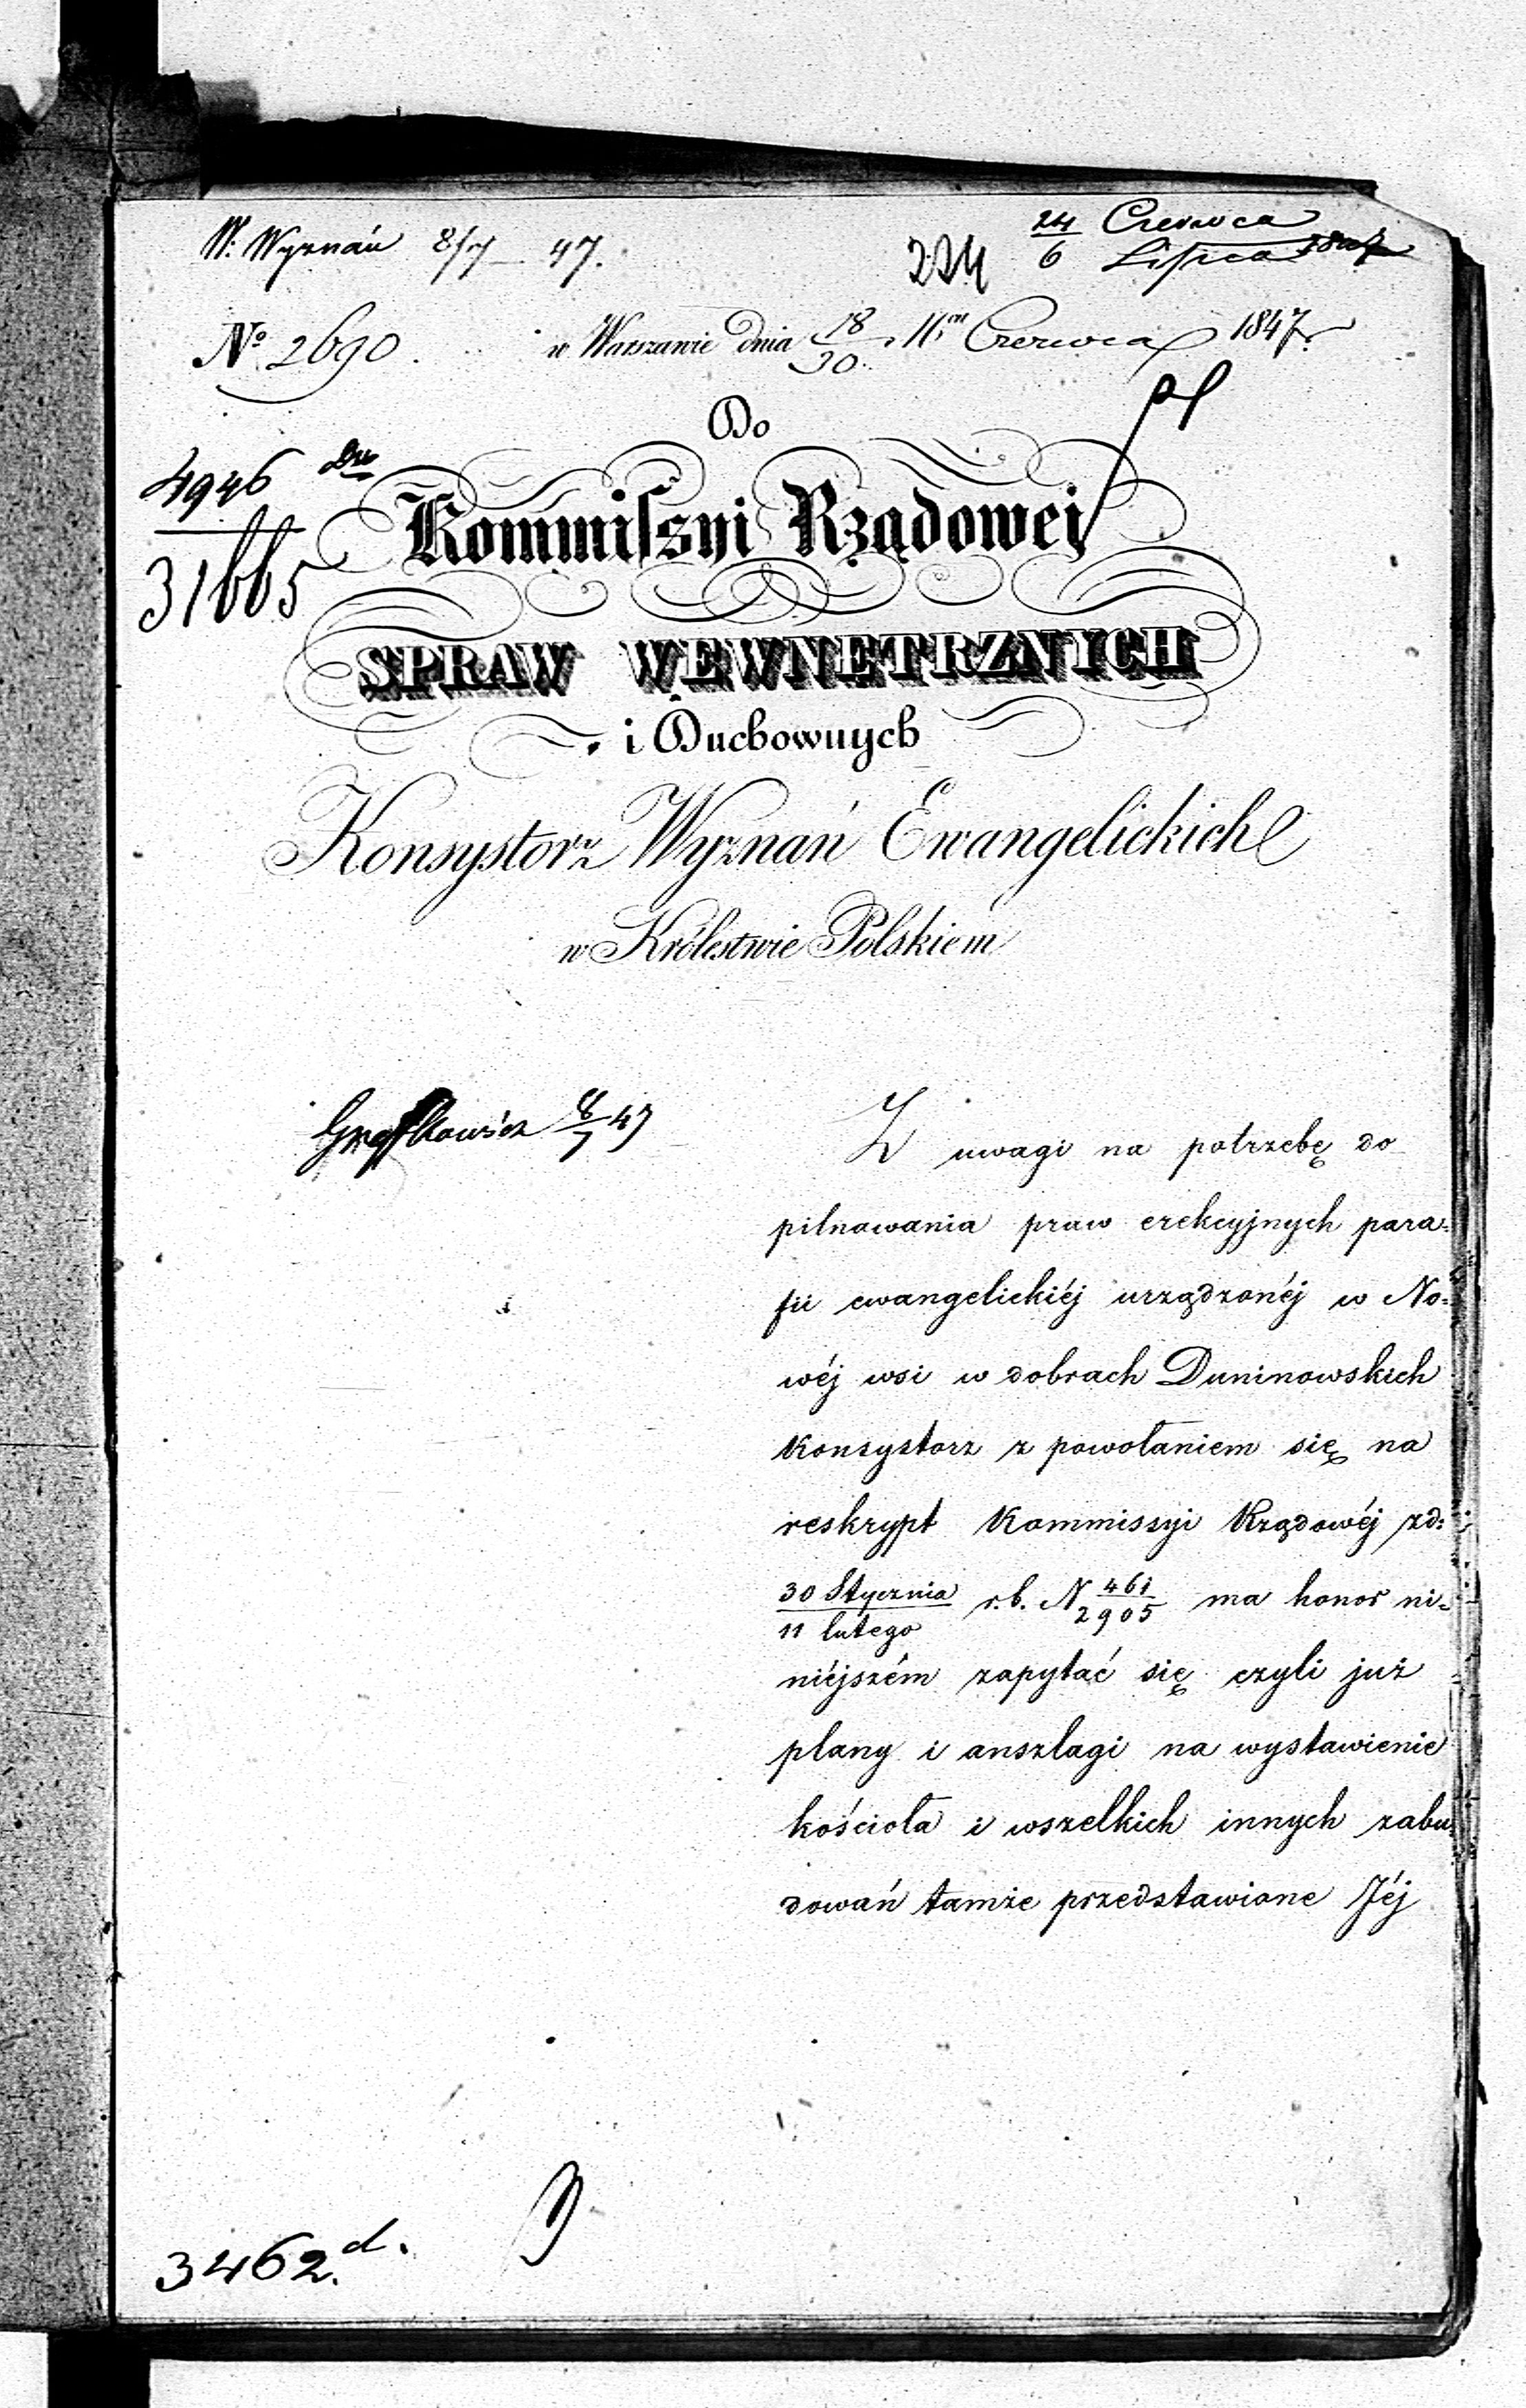 W: Wyznań 8/7 47.
224
24 Czerwca
6 Lipca 1847
No 2690.
w Warszawie dnia 18/30 Czerwca 1847 r.
Do
4946
31665
Kommiſsyi Rządowej
SPRAW WEWNĘTRZNYCH
i Duchownych
Konsystorz Wyznań Ewangelickich
w Królestwie Polskiem
8/7 47
Z uwagi na potrzebę do
pilnowania praw erekcyjnych para=
fii ewangelickiéj urządzonéj w No=
wéj wsi w dobrach Duninowskich
Konsystorz z powołaniem się na
reskrypt Kommissyi Rządowéj z d:
30 Stycznia
11 lutego
r.b. N 461/2905 ma honor ni=
niéjszém zapytać się czyli już
plany i anszlagi na wystawienie
kościoła i wszelkich innych zabu=
dowań tamże przedstawione Jéj
3462.d.